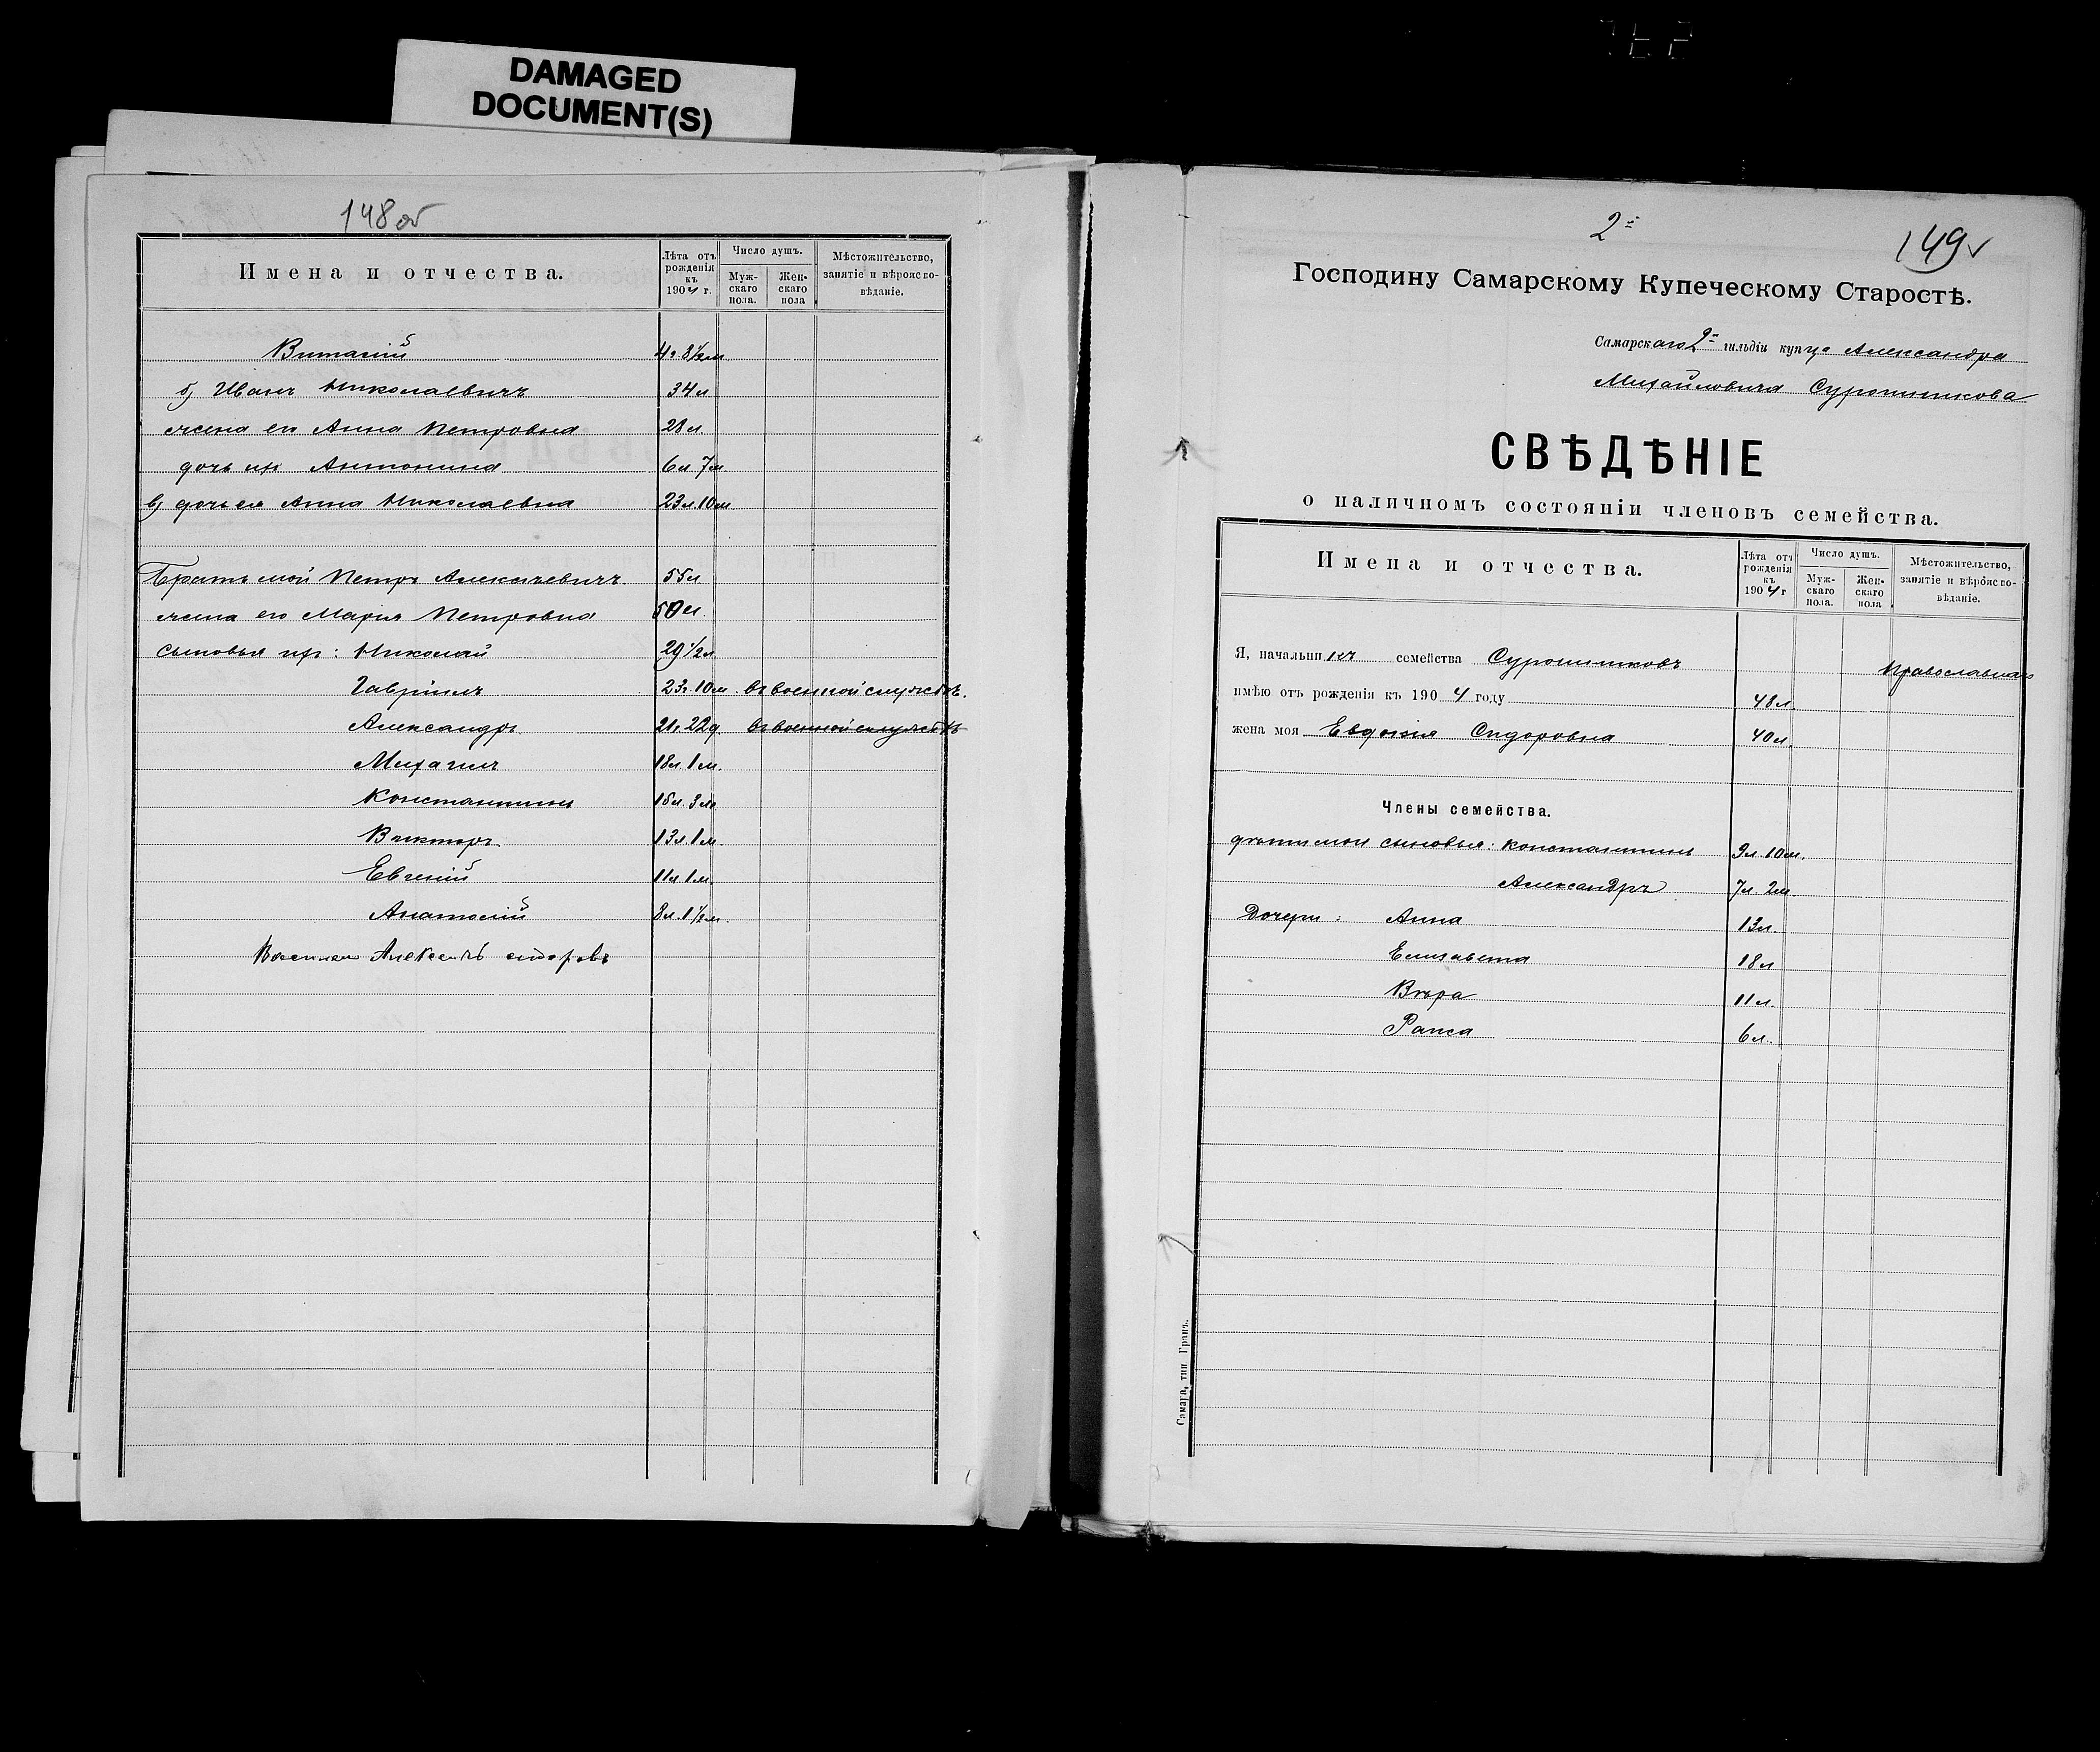 DAMAGED
DOCUMENT(S)
148 об
Имена и отчества.
Лѣта отъ рожденія къ 1904 г.
Число душъ.
Мужскаго пола.
Женскаго пола
Мѣстожительство, занятіе и вѣроисповѣданіе.
Виталій 4г. 8½м
б) Иванъ Николаевичъ 34л
жена его Анна Петровна 28л.
дочь их Антонина 6л 7м
в) дочь ея Анна Николаевна 23л.10м
Братъ мой Петръ Алексѣевичъ 55л
жена его Марія Петровна 50л.
сыновья ихъ: Николай 29½л
Гавріилъ 23г.10м. въ военной службѣ.
Александръ 21г.22д. въ военной службѣ
Михаилъ 18л.1м.
Константинъ 15л.3м.
Викторъ 13л.1м.
Евгеній 11л.1м.
Анатолій 8л.1½м.
2й
149
Господину Самарскому Купеческому Старостѣ.
Самарскаго 2й гильдіи купца Александра
Михайловича Сурошникова
СВѢДѢНІЕ
о наличномъ состояніи членовъ семейства.
Имена и отчества.
Лѣта отъ рожденія къ 1904 г
Число душъ.
Мужскаго пола.
Женскаго пола
Мѣстожительство, занятіе и вѣроисповѣданіе.
Я, начальникъ семейства Сурошниковъ Православнаго
имѣю отъ рожденія къ 1904 году 48л.
жена моя Евдокія Сидоровна 40л.
Члены семейства.
дѣти мои сыновья: Константинъ 9л.10м.
Александръ 7л 2м.
Дочери: Анна 13л.
Елизавета 18л
Вѣра 11л.
Раиса 6л.
Самара, тип. Гранъ.